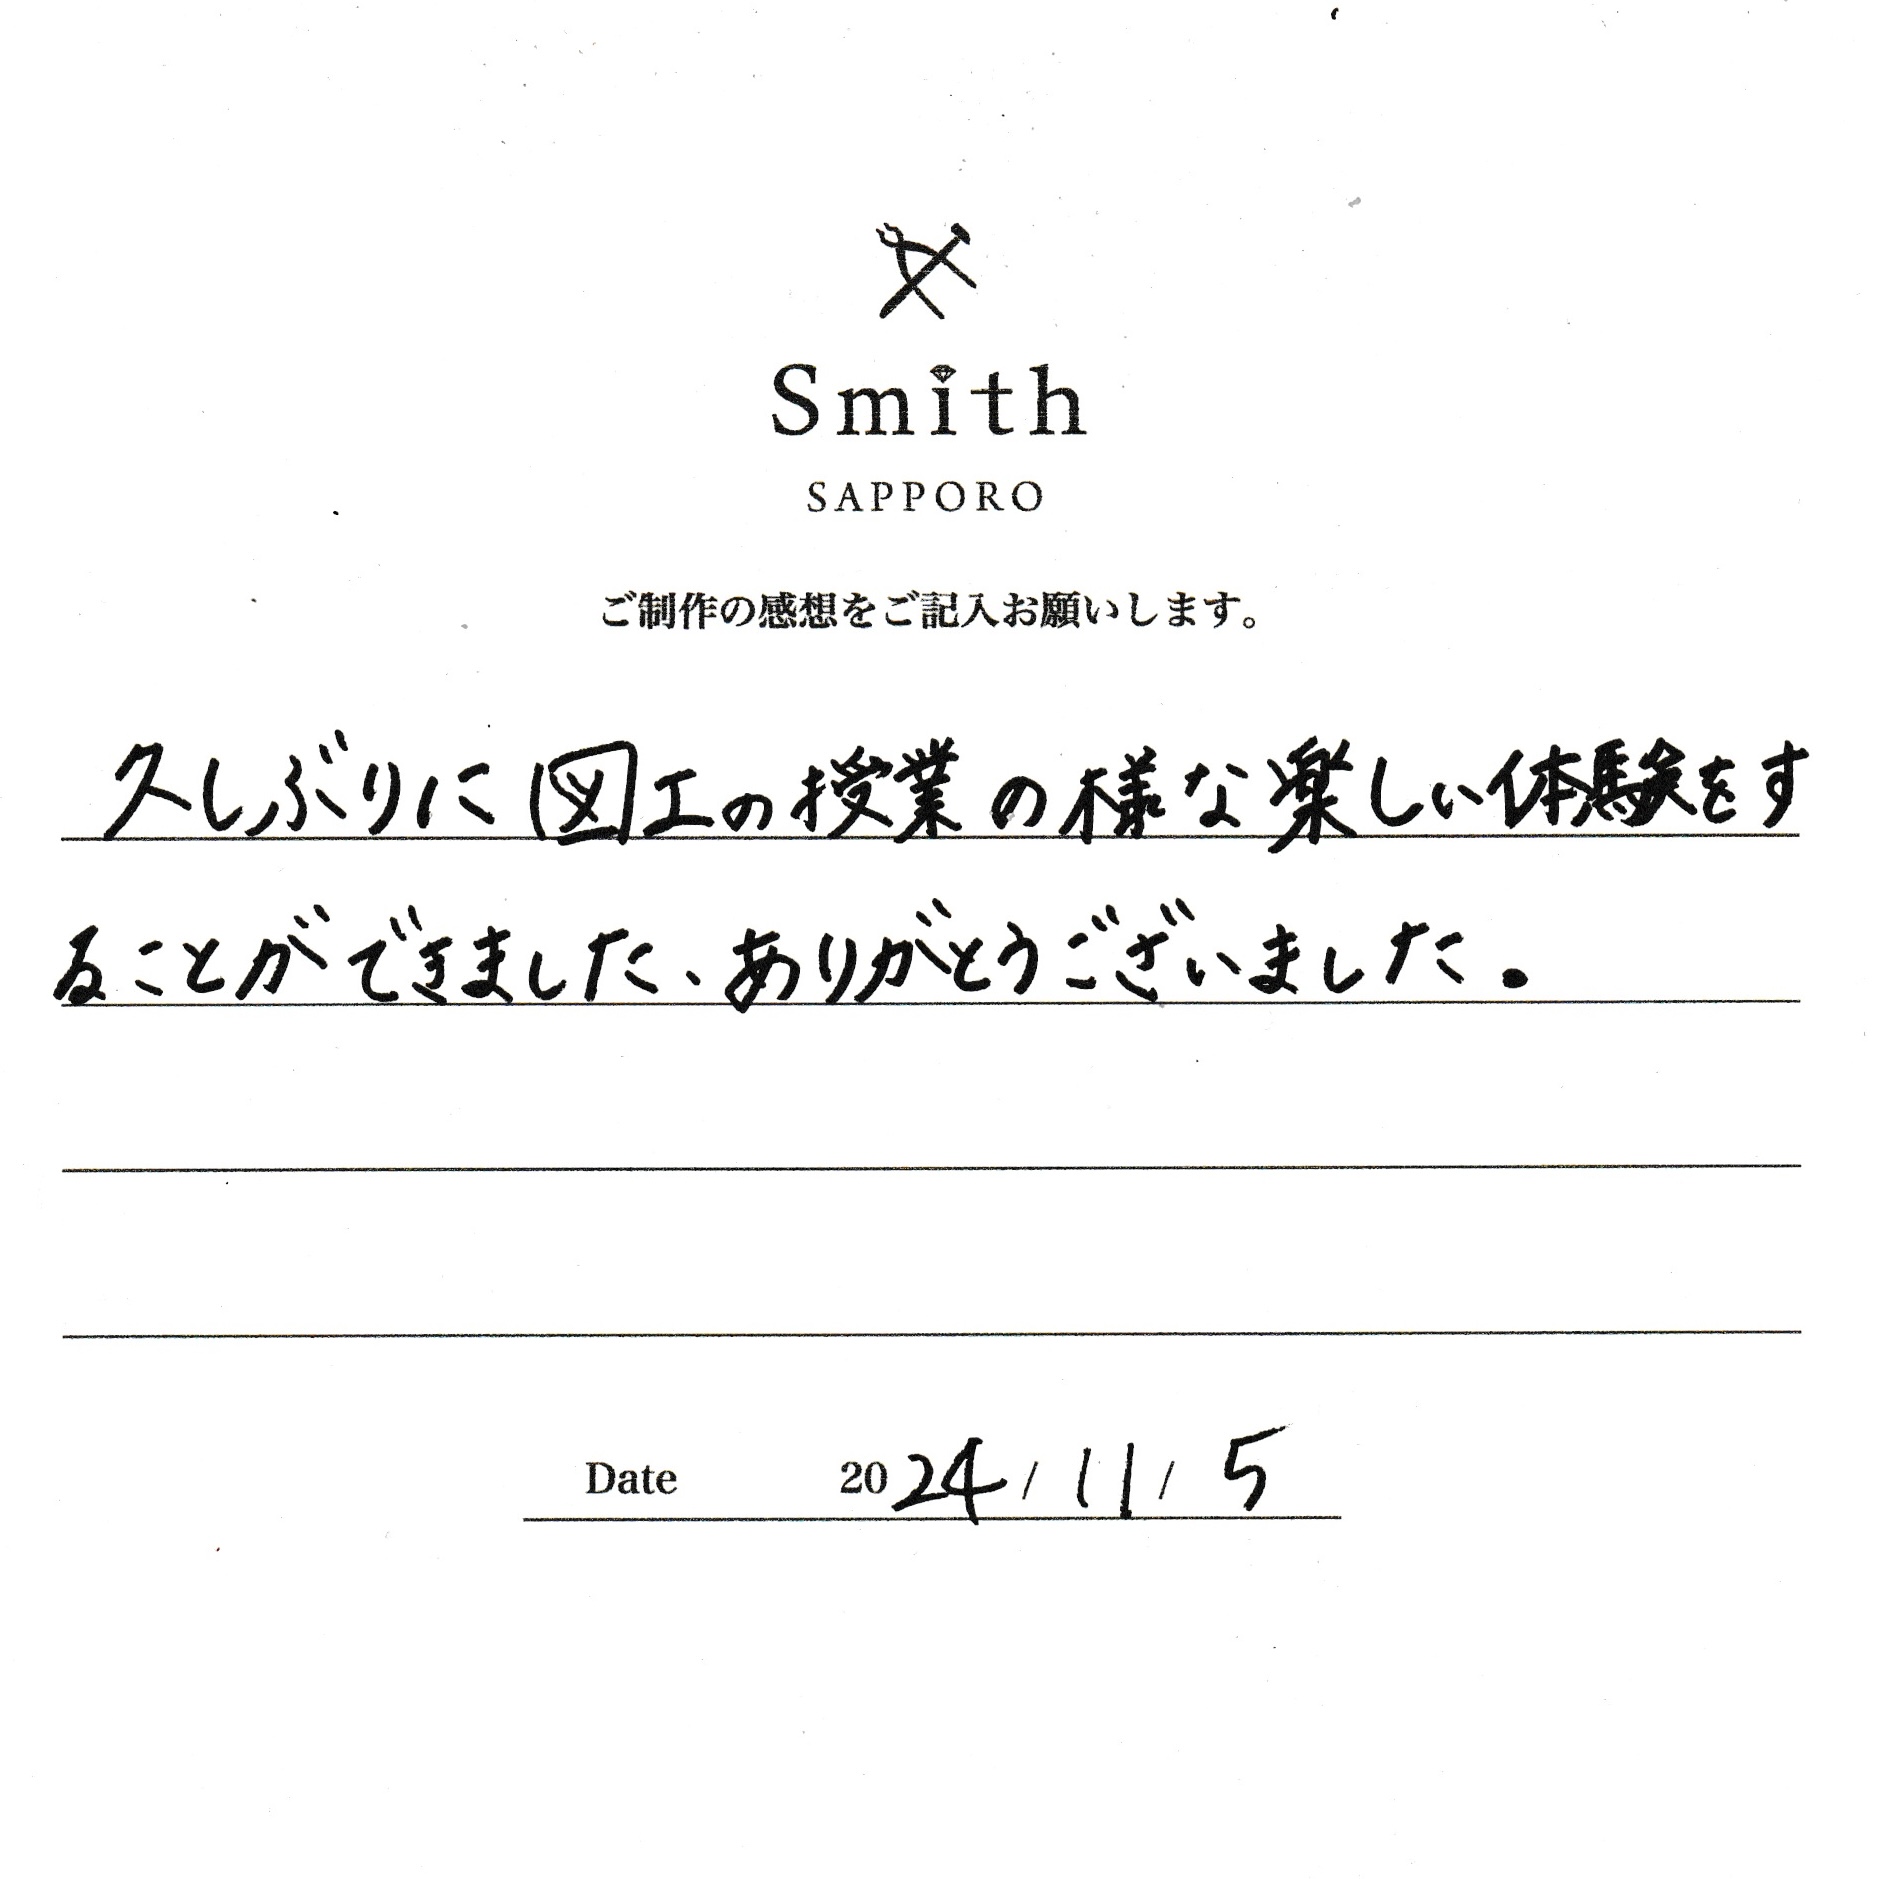 Smith
SAPPORO
ご制作の感想をご記入お願いします。
久しぶりに図工の授業の様な楽しい体験をす
ることができました、ありがとうございました。
Date 2024/11/5